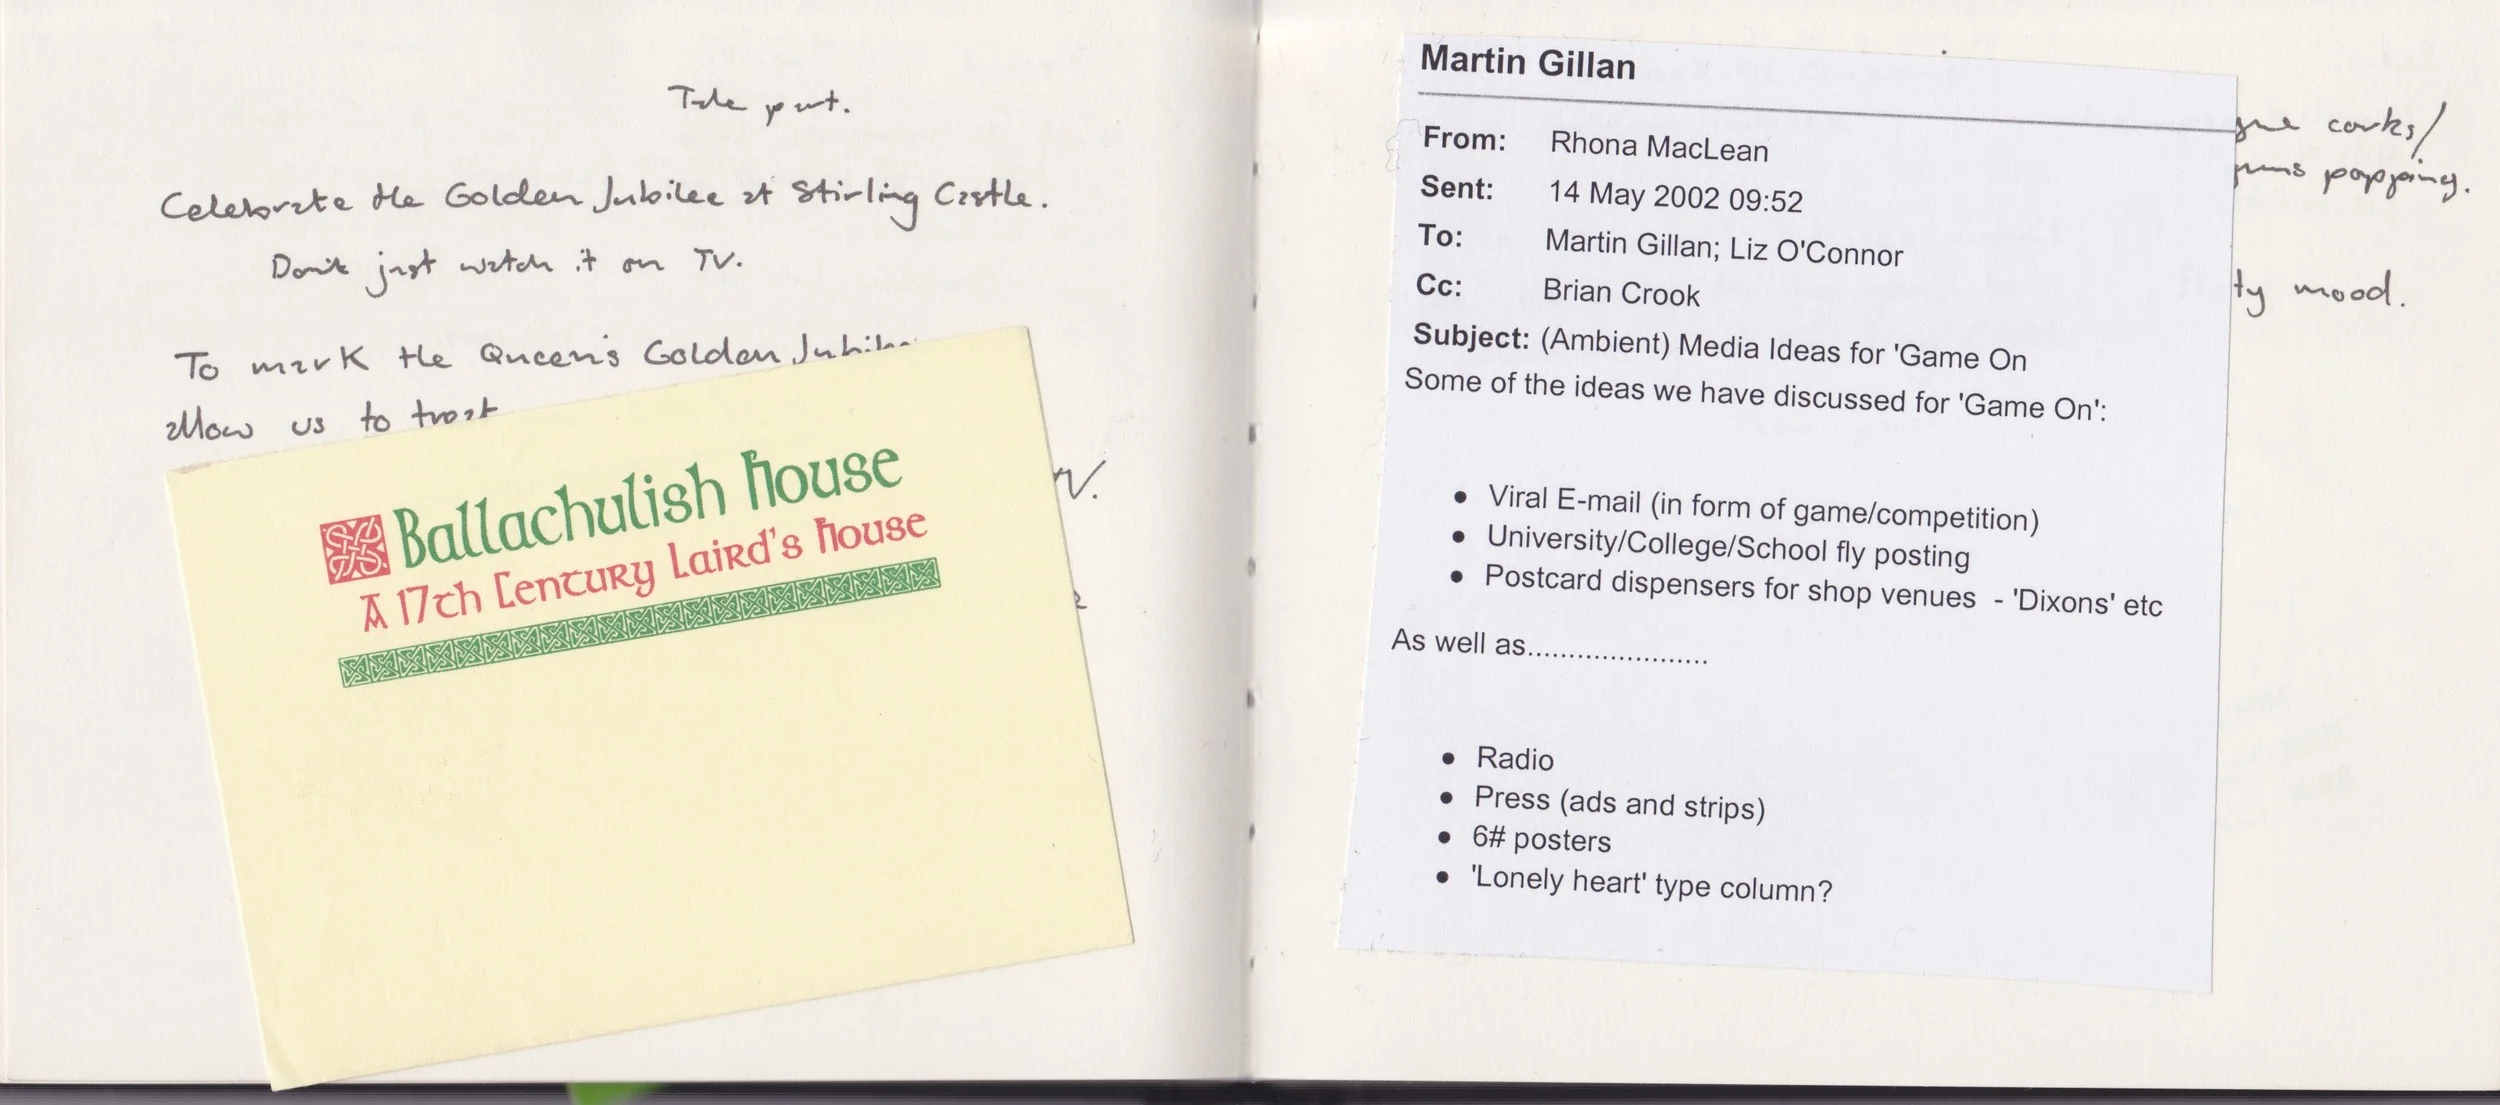 Take part.
Celebrate the Golden Jubilee at Stirling Castle.
Don't just watch it on TV.
To mark the Queen's Golden Jubilee
allow us to treat
TV.
Ballachulish House
A 17th Century Laird's House
Martin Gillan
From: Rhona MacLean
Sent: 14 May 2002 09:52
To: Martin Gillan; Liz O'Connor
Cc: Brian Crook
Subject: (Ambient) Media Ideas for 'Game On
Some of the ideas we have discussed for 'Game On':
• Viral E-mail (in form of game/competition)
• University/College/School fly posting
• Postcard dispensers for shop venues - 'Dixons' etc
As well as......................
• Radio
• Press (ads and strips)
• 6# posters
• 'Lonely heart' type column?
corks/
popping.
ty mood.